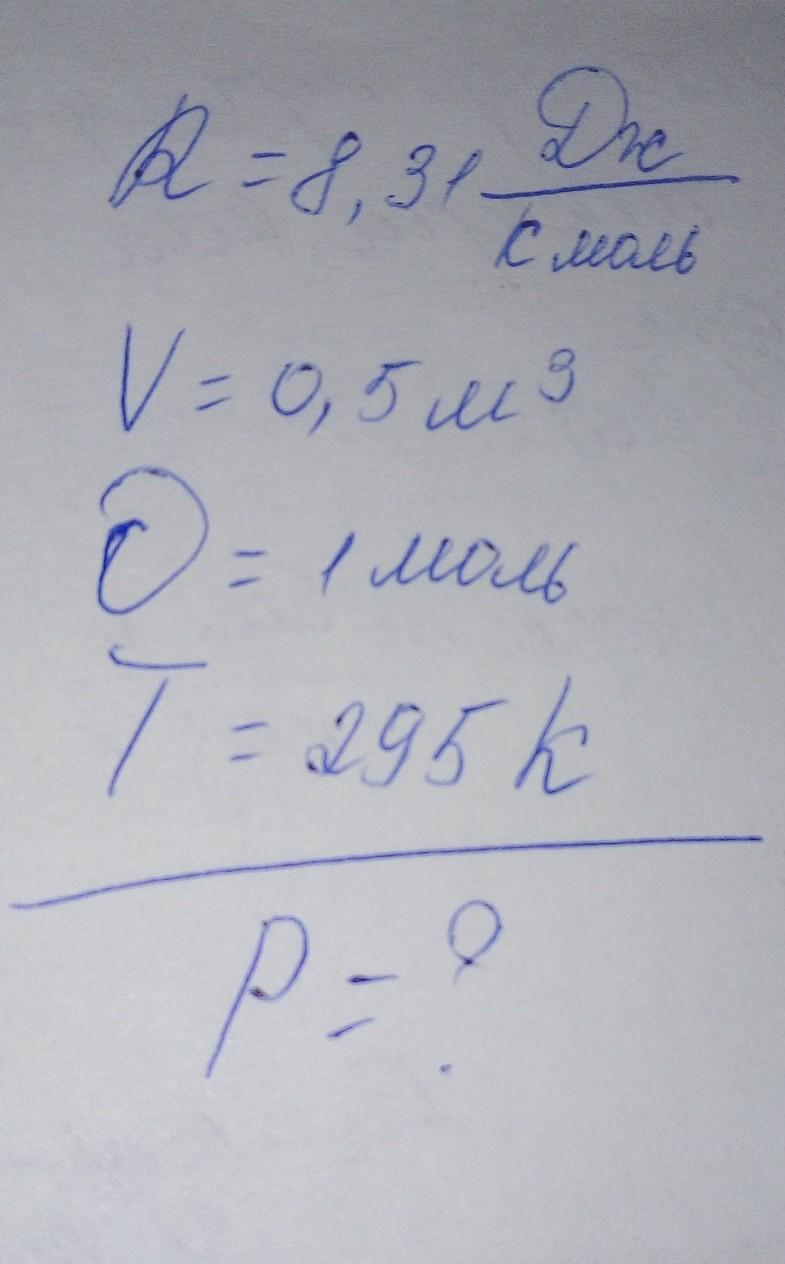 R = 8,31 Дж / К моль
V = 0,5 м³
υ = 1 моль
T = 295 К
P = ?